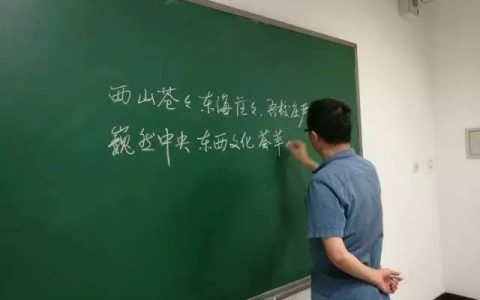 西山苍々东海茫々，吾校庄严
巍然中央 东西文化荟萃